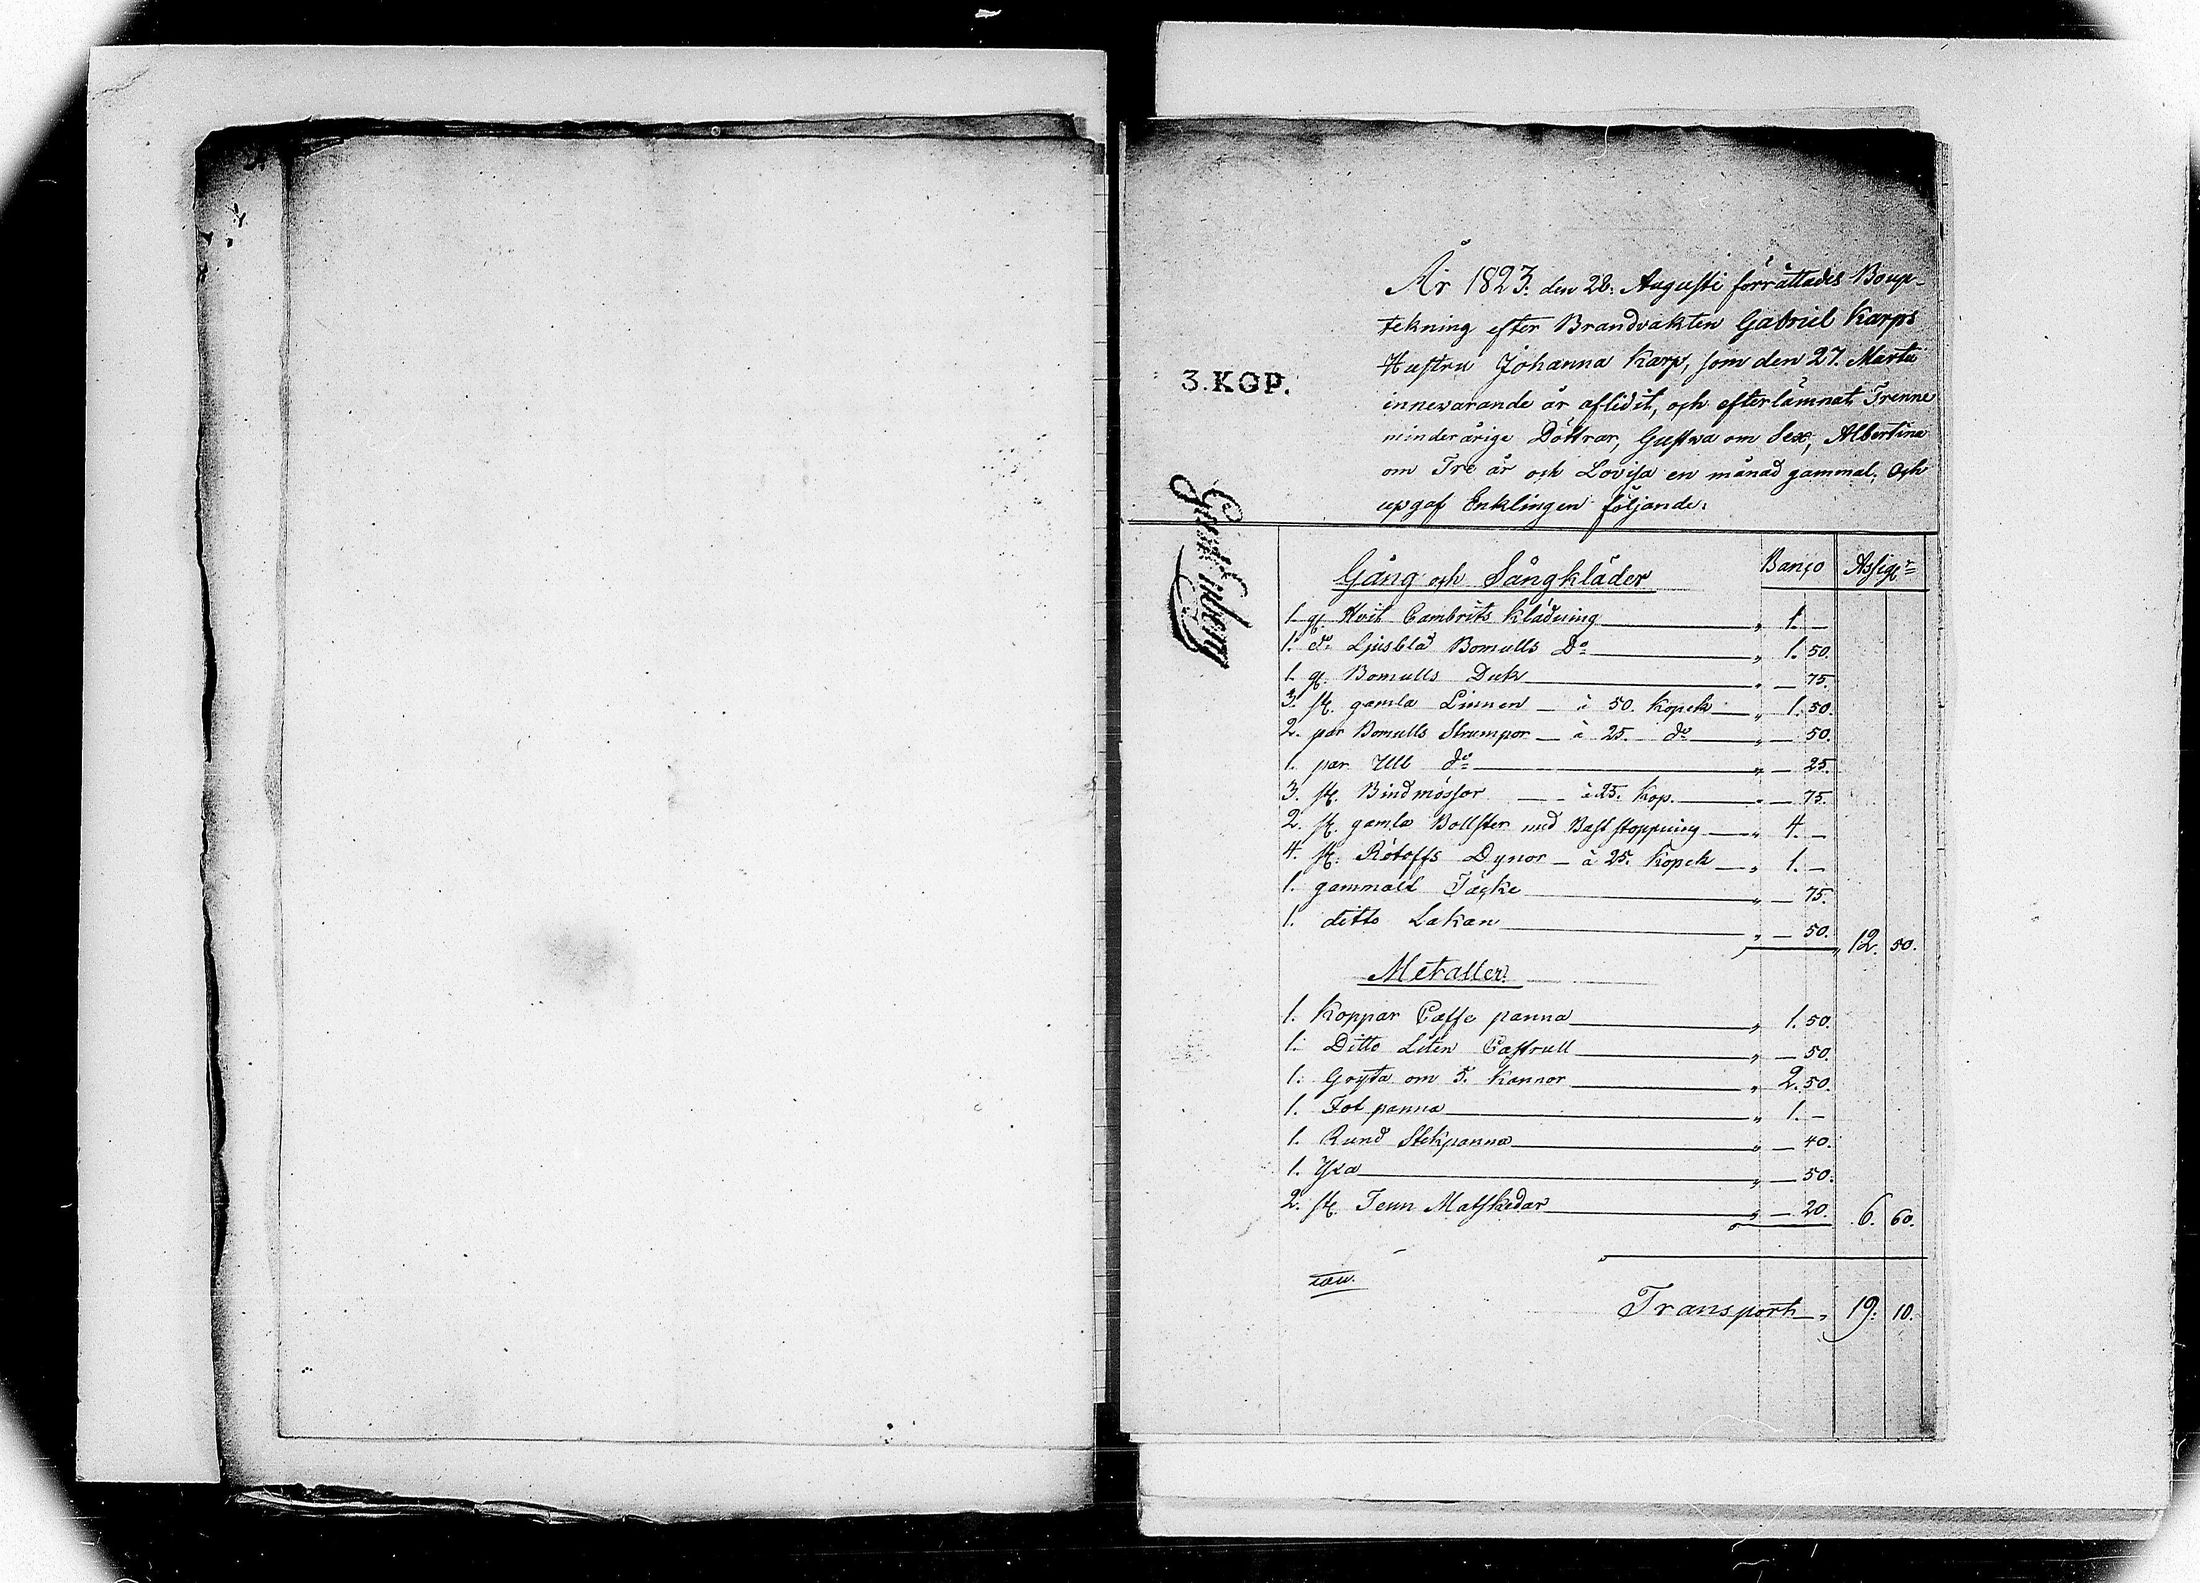 År 1823. den 28. Augusti förrättades Boup-
tekning efter Brandvakten Gabriel Karps
Hustru Johanna Karp, som den 27. Martii
3.KOP.
innevarande år aflidit, och efterlämnat Trenne
minderårige Döttrar, Gustva om Sex, Albertina
om Tre år och Lovisa en månad gammal, Och
upgaf Enklingen följande:
Gång och Sängkläder Banco Assigr
1. st. Hvit Cambrits Klädning „ 1. —
1. do Ljusblå Bomulls Do „ 1. 50.
1. st. Bomulls Duk „ — 75.
3. st. gamla Linnen — à 50. Kopek „ 1. 50.
2. par Bomulls Strumpor — à 25. do „ — 50.
1. par Ull do „ — 25.
3. st. Bindmössor — à 25. Kop. „ — 75.
2. st. gamla Bollster med Bast stoppning „ 4. —
4. st. Dynor — à 25. Kopek „ 1. —
1. gammalt Täcke „ — 75.
1. ditto Lakan „ — 50. „ 12. 50.
Metaller.
1. Koppar Caffe panna „ 1. 50.
1. Ditto Liten Castrull „ — 50.
1. Gryta om 5. Kannor „ 2. 50.
1. Fot panna „ 1. —
1. Rund Stekpanna „ — 40.
1. Yxa „ — 50.
2. st. Tenn Matskedar „ — 20. 6. 60.
Transport „ 19. 10.